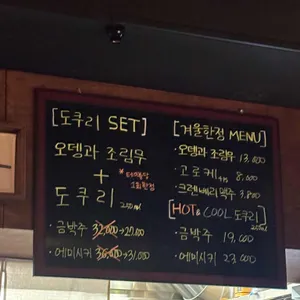 [도쿠리 SET]
오뎅과 조림무
+
* 테이블당
1회한정
도쿠리 250ml
· 금박주 32,000→27,000
· 에미시키 36,000→31,000
[겨울한정 MENU]
· 오뎅과 조림무 13,000
· 고로케 8,000
· 크랜베리맥주 3,800
[HOT& COOL 도쿠리]
250ml
금박주 19,000
· 에미시키 23,000